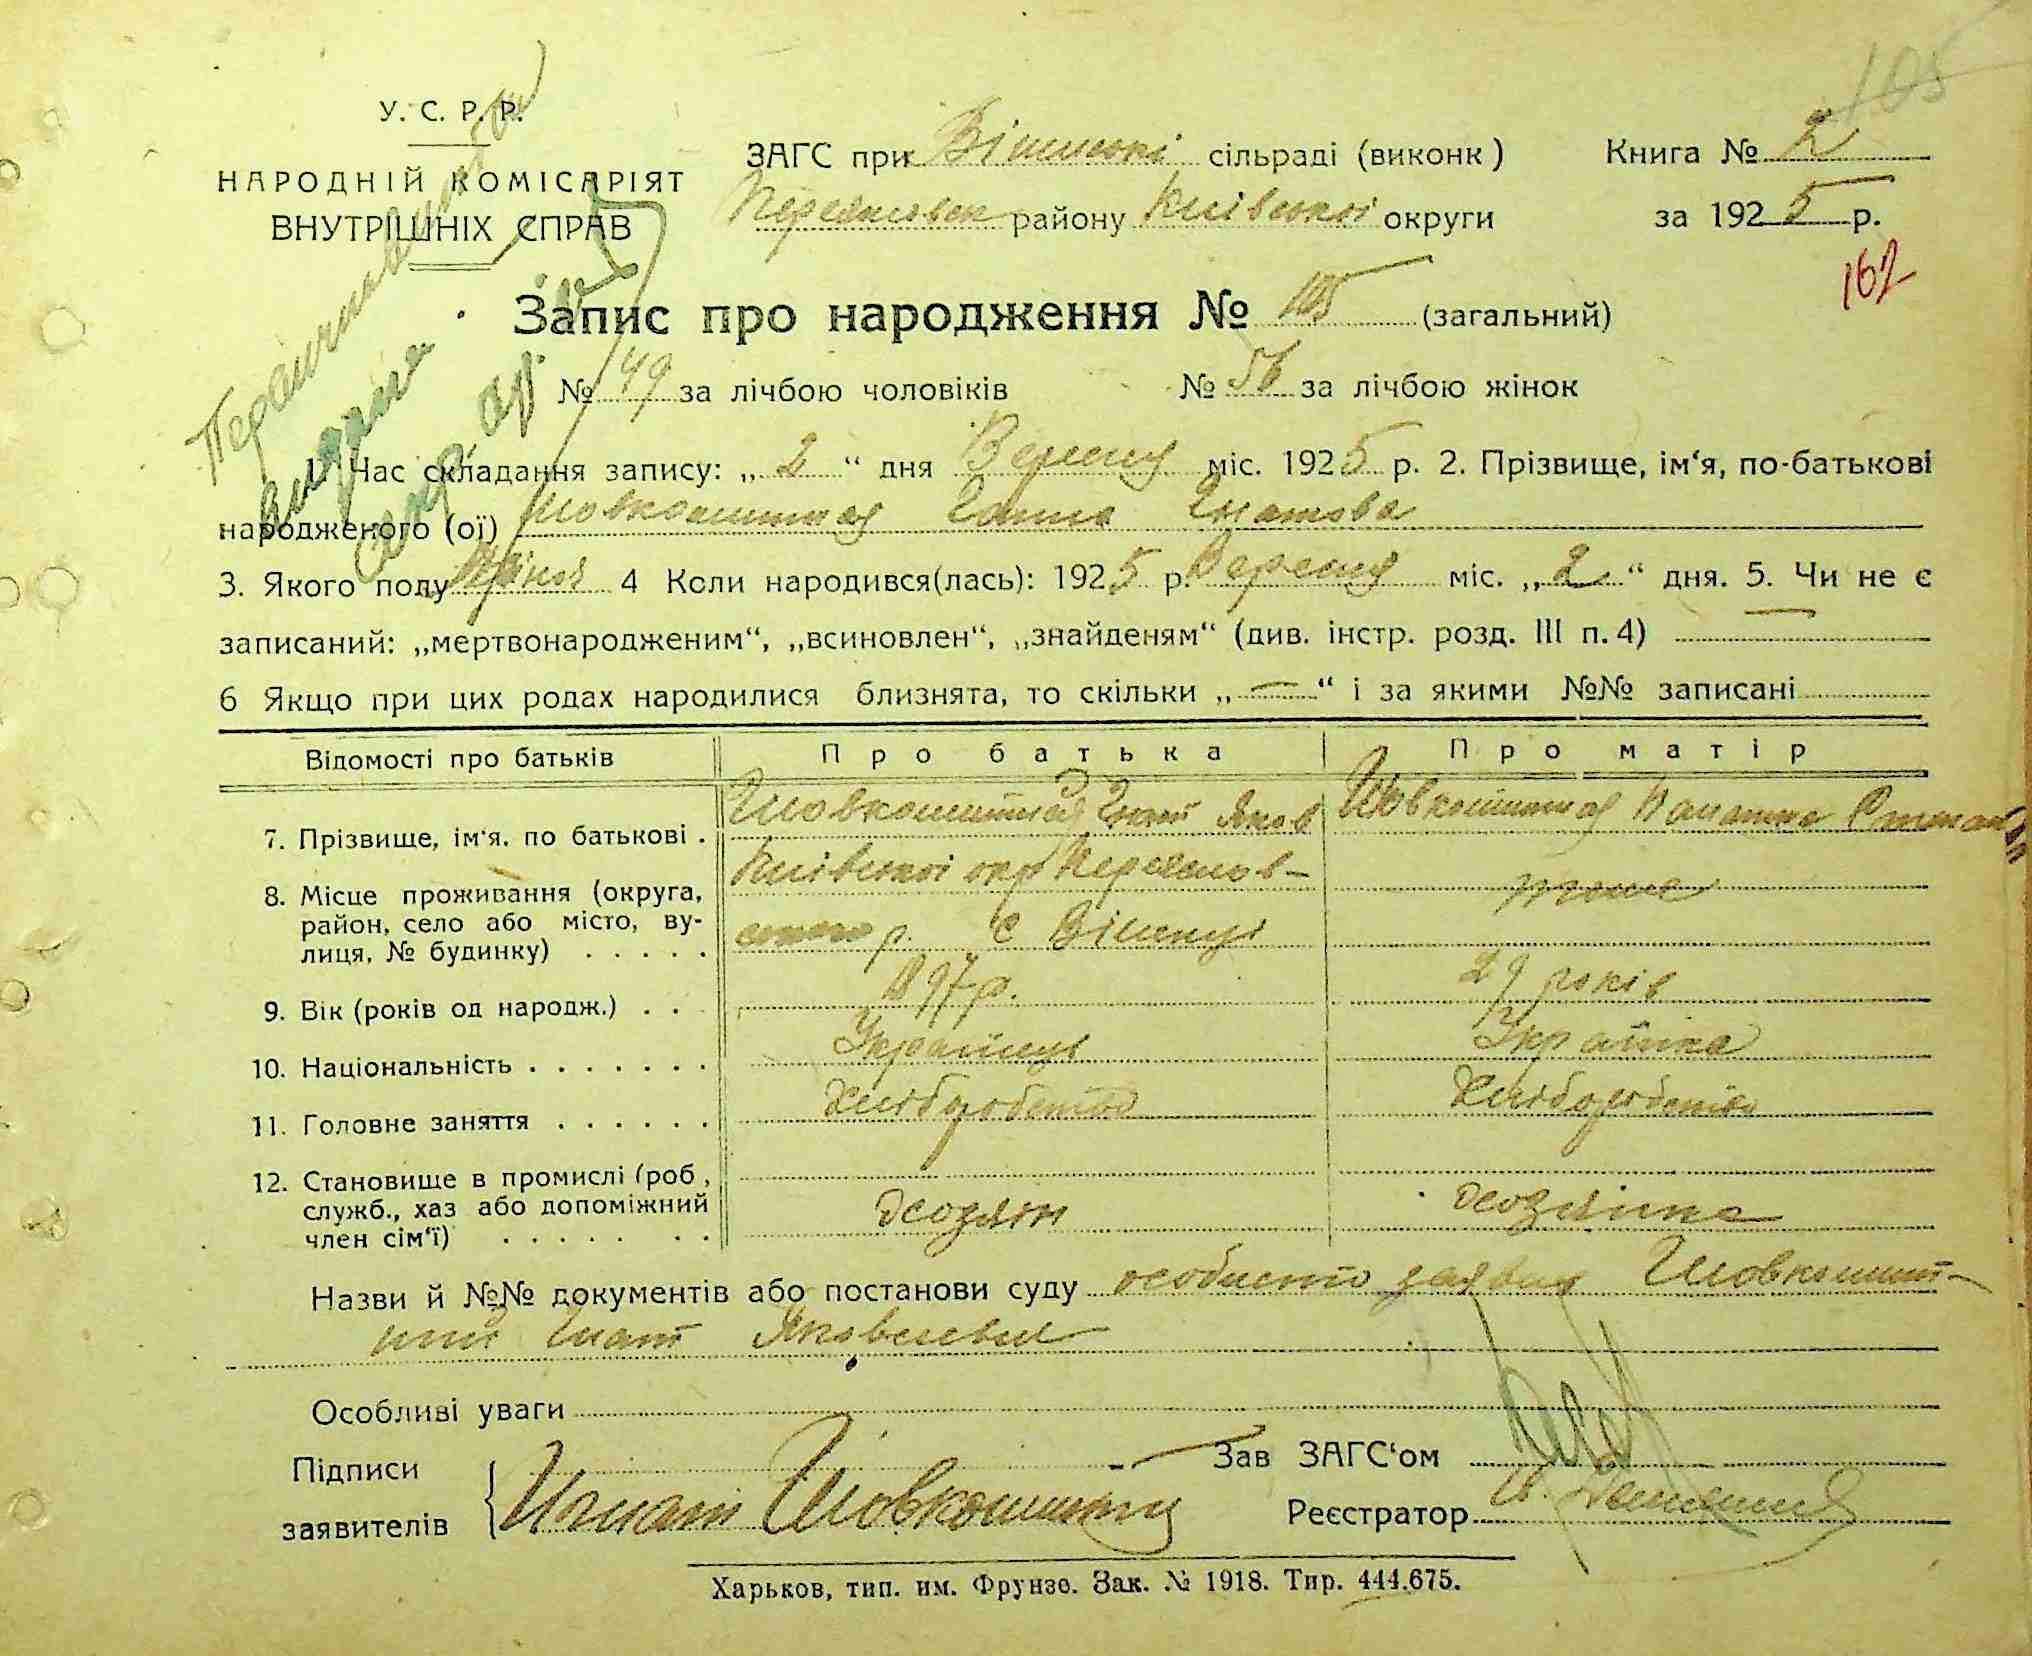 105
У. С. Р. Р.
НАРОДНІЙ КОМІСАРІЯТ
ВНУТРІШНІХ СПРАВ
ЗАГС при сільраді (виконк)
Книга № 2
району Київської округи
за 1925 р.
162
Запис про народження № 105 (загальний)
№ 49 за лічбою чоловіків № 56 за лічбою жінок
1. Час складання запису: „ 2 “ дня Вересня міс. 1925 р. 2. Прізвище, ім‘я, по-батькові
народженого (ої) Ганна Гнатова
3. Якого полу 4 Коли народився(лась): 1925 р. Вересня міс. „ 2 “ дня. 5. Чи не є
записаний: „мертвонародженим“, „всиновлен“, „знайденям“ (див. інстр. розд. III п. 4) —
6 Якщо при цих родах народилися близнята, то скільки „ — “ і за якими №№ записані
Відомості про батьків Про батька Про матір
7. Прізвище, ім‘я. по батькові . Гнат Яков
8. Місце проживання (округа, Київської окр Переяслов-
район, село або місто, ву- ського р. с
лиця, № будинку) . . . . . тоже
9. Вік (років од народж.) . . 1897 р. 29 років
10. Національність . . . . . . . Українець Українка
11. Головне заняття . . . . . . Хліборобство Хліборобство
12. Становище в промислі (роб,
служб., хаз або допоміжний хозяїн хозяйка
член сім‘ї) . . . . . . .
Назви й №№ документів або постанови суду особисто заявив Шовкошит-
ний Гнат Яковлевич
Особливі уваги
Підписи
заявителів Игнат Шовкошитный
Зав ЗАГС‘ом
Реєстратор
Харьков, тип. им. Фрунзе. Зак. № 1918. Тир. 444.675.